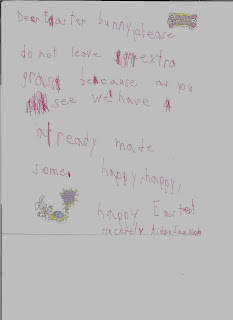 Dear Easter bunny please
do not leave extra
grass because as you
see we have
already made
some. happy, happy,
happy Easter!
sincerely Aidan,